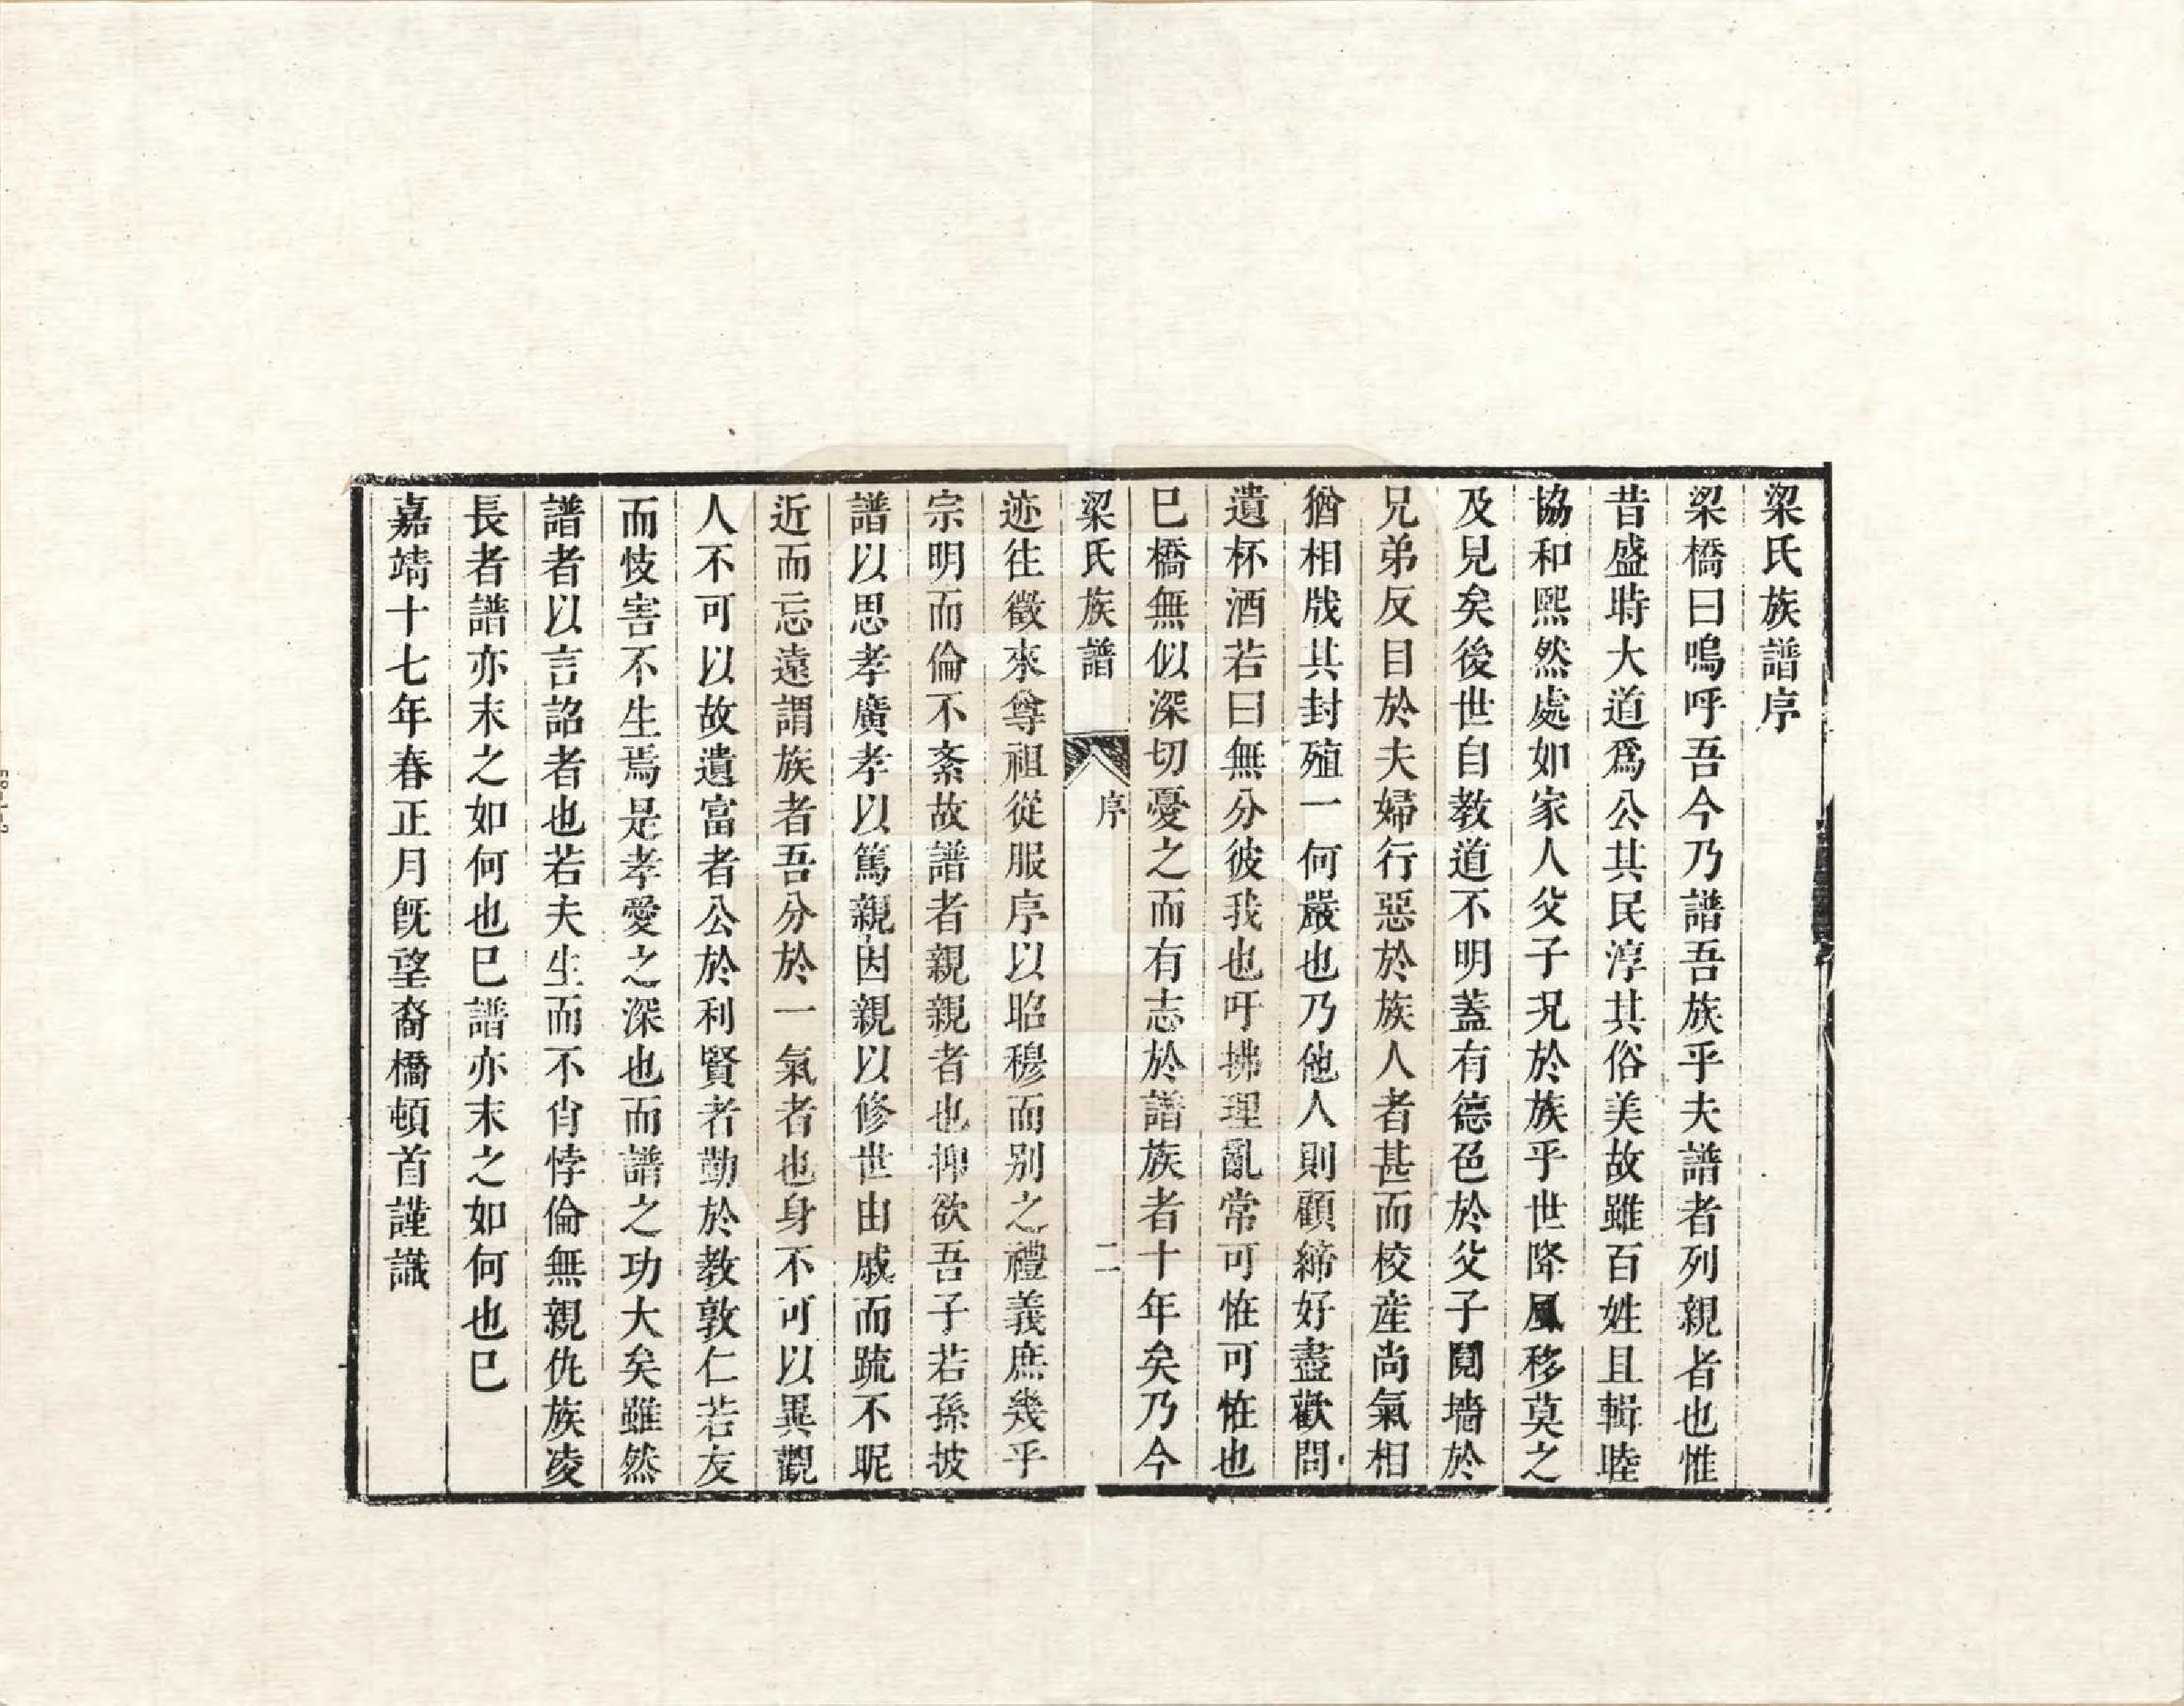 梁氏族譜序
梁橋曰嗚呼吾今乃譜吾族乎夫譜者列親者也惟
昔盛時大道爲公其民淳其俗美故雖百姓且輯睦
協和熙然處如家人父子况於族乎世降風移莫之
及見矣後世自教道不明蓋有德色於父子鬩墻於
兄弟反目於夫婦行惡於族人者甚而校產尚氣相
猶相戕其封殖一何嚴也乃他人則顧締好盡歡問
遺杯酒若曰無分彼我也吁拂理亂常可恠可恠也
巳橋無似深切憂之而有志於譜族者十年矣乃今
梁氏族譜 序 二
迹往徵來尊祖從服序以昭穆而别之禮義庶幾乎
宗明而倫不紊故譜者親親者也抑欲吾子若孫披
譜以思孝廣孝以篤親因親以修世由戚而疏不昵
近而忘遠謂族者吾分於一氣者也身不可以異觀
人不可以故遺富者公於利賢者勤於教敦仁若友
而忮害不生焉是孝愛之深也而譜之功大矣雖然
譜者以言詔者也若夫生而不肖悖倫無親仇族凌
長者譜亦末之如何也巳譜亦末之如何也巳
嘉靖十七年春正月旣望裔橋頓首謹識